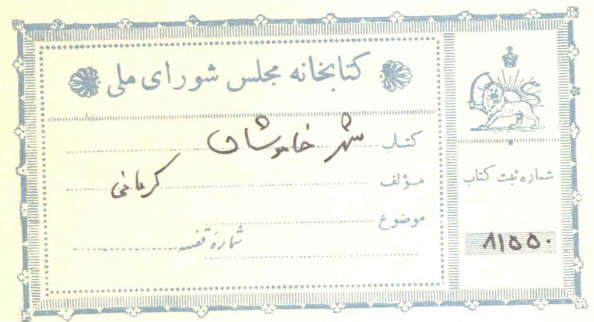 کتابخانه مجلس شورای ملی
کتاب شهر خاموشان
مؤلف کرمانی
موضوع
شماره قفسه
شماره ثبت کتاب
۸۱۵۵۰